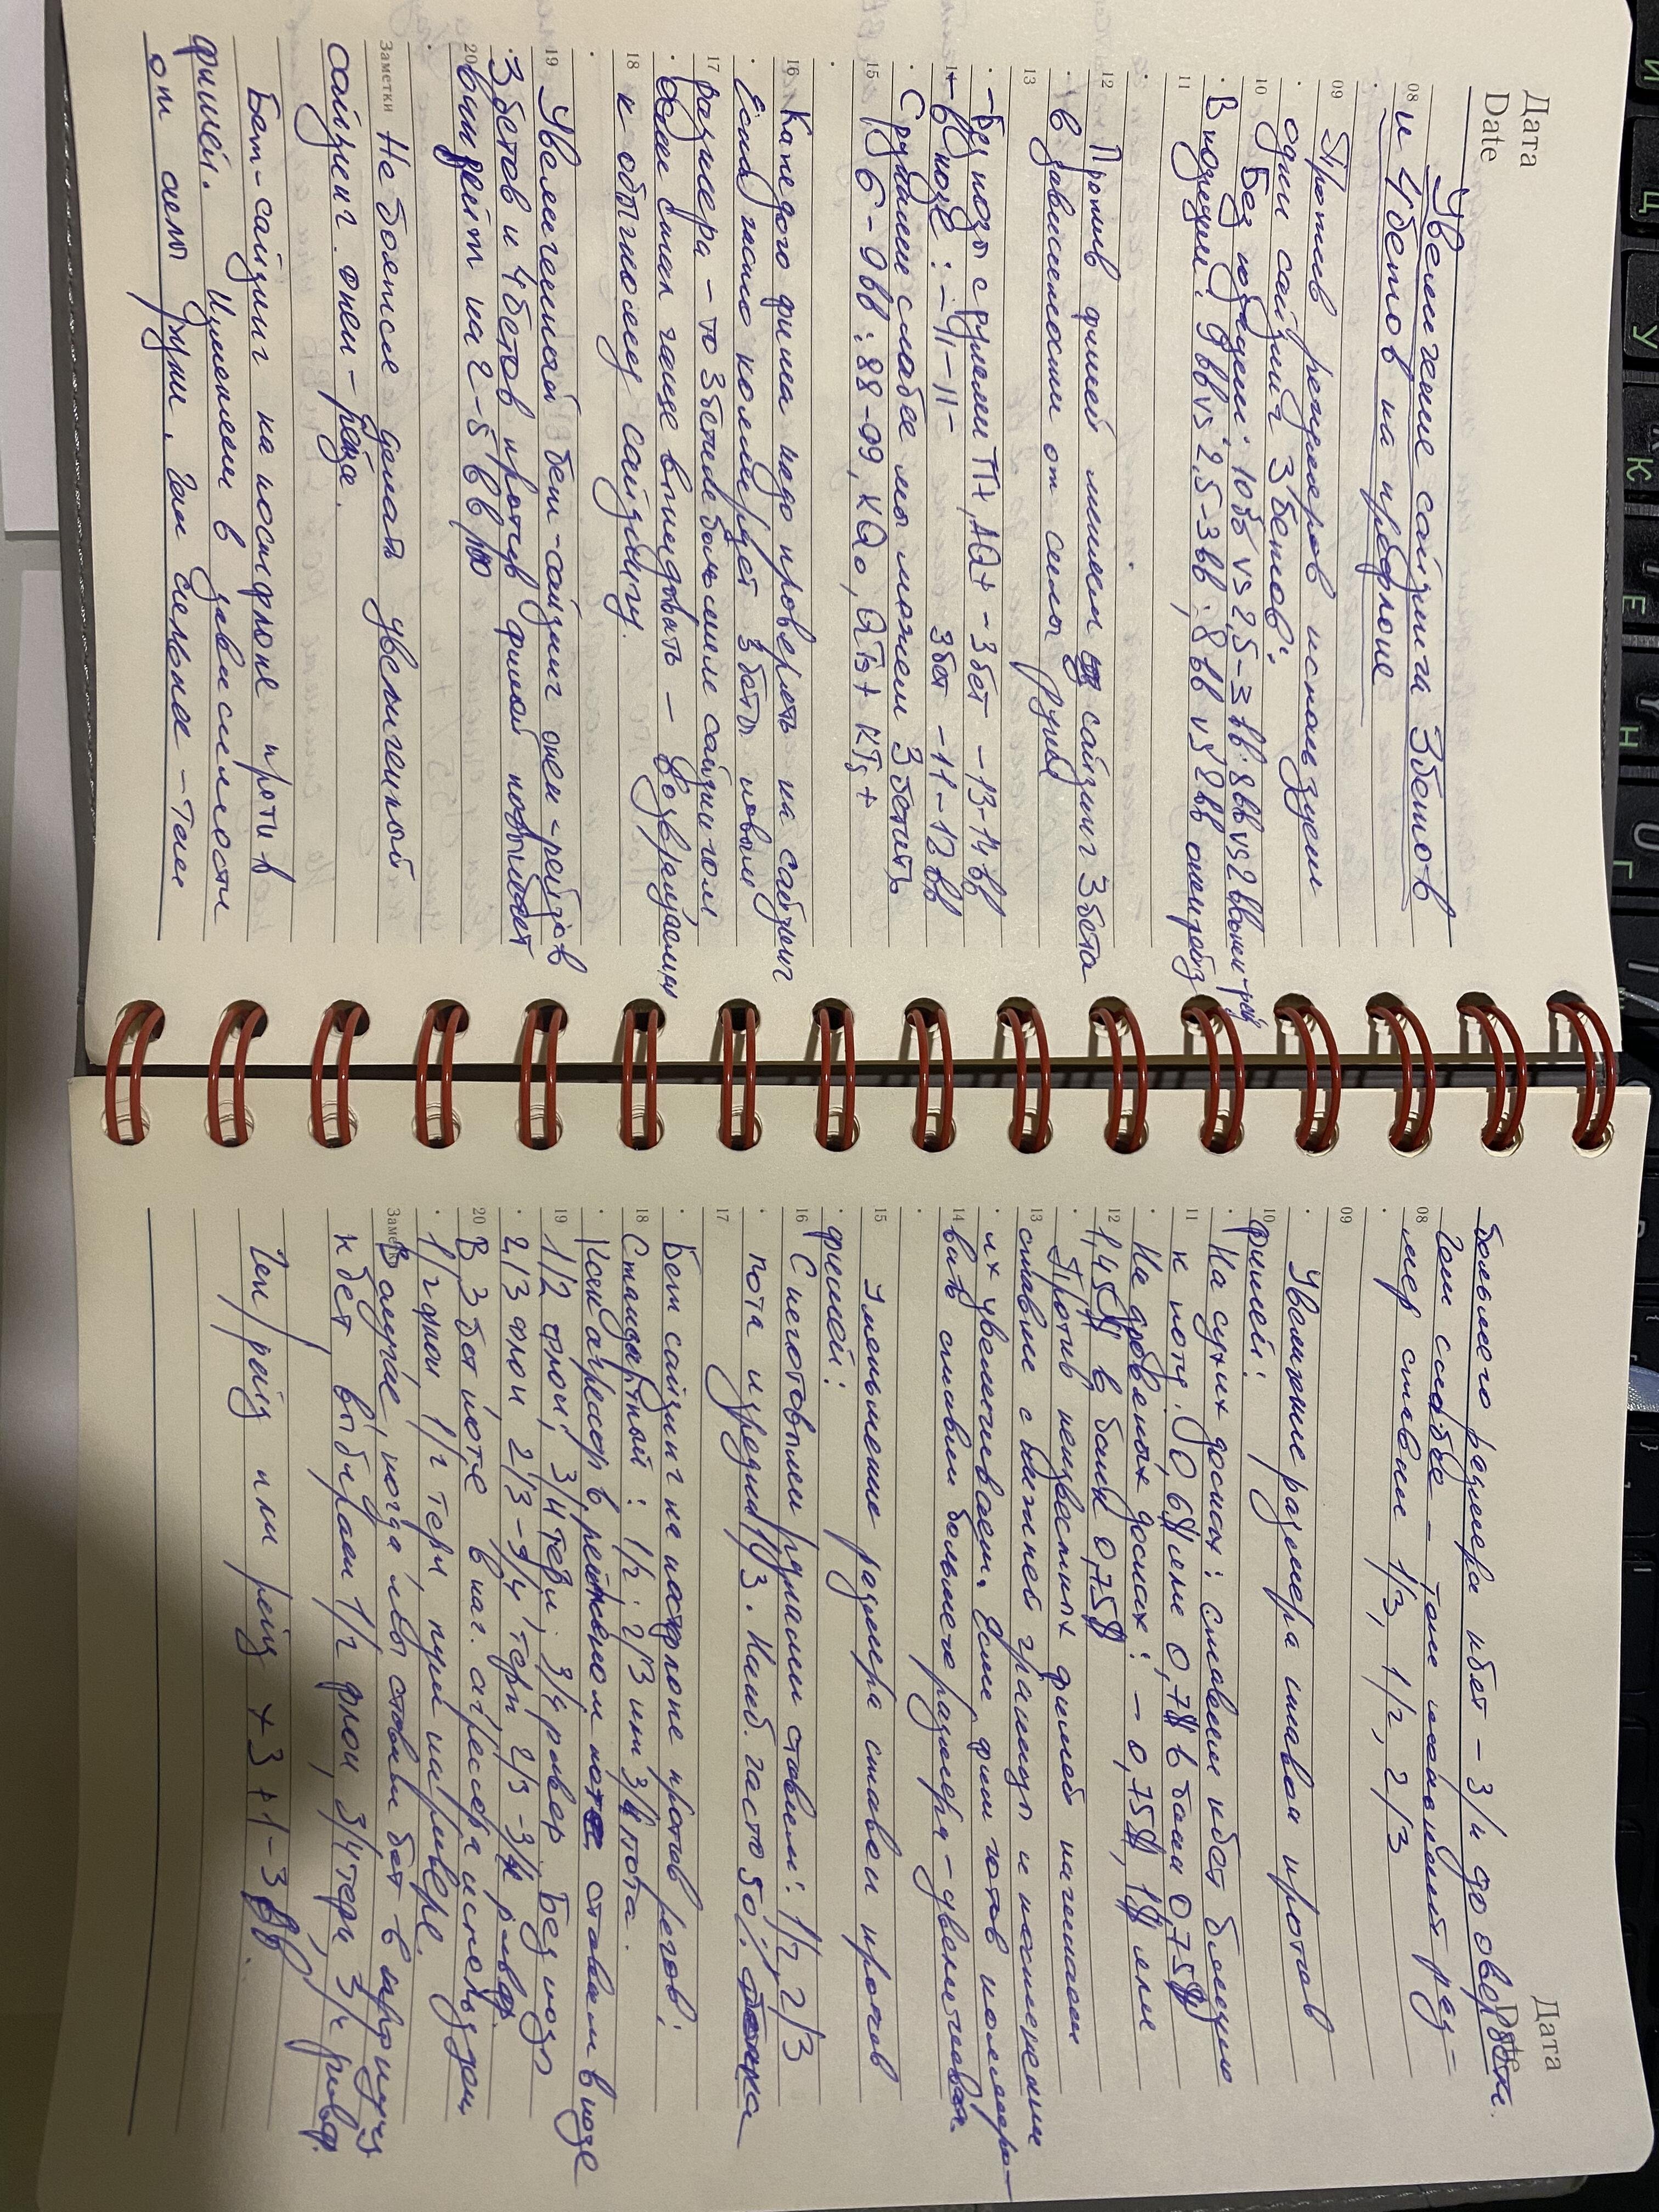 Дата
Date
Увеличение сайзинга 3бетов
08 и 4бетов на префлопе
09 Против регуляров используем
один сайзинг 3бетов:
10 Без позиции: 10вв vs 2,5-3вв; 8вв vs 2вв опен-рейз
В позиции: 9вв vs 2,5-3вв; 8вв vs 2вв опенрейз
11
12 Против фишей меняем сайзинг 3бета
в зависимости от силы руки
13
- Без позы с руками TT+, AQ+ - 3бет - 13-14вв
14 - в позе: -11-11- 3бет - 11-12вв
С руками слабее мы можем 3бетить
15 по 6-9вв: 88-99, KQo, QTs+ KTs+
16 Каждого фиша надо проверять на сайзинг
Если часто коллирует 3беты нового
17 размера - то 3бетим большим сайзингом
Если стал чаще выкидывать - возвращаемся
18 к обычному сайзингу.
19 Увеличенный бет-сайзинг опен-рейзов
3бетов и 4бетов против фишей повышает
20 винрейт на 2-5 вв/100
Заметки Не боятся делать увеличенный
сайзинг опен-рейза.
Бет-сайзинг на постфлопе против
фишей. Изменяем в зависимости
от силы руки. Чем сильнее - тем
Дата
Date
большего размера кбет - 3/4 до овербета.
Чем слабее - тем меньший раз-
08 мер ставки 1/3, 1/2, 2/3
09
Увеличение размера ставок против
10 фишей:
На сухих досках: ставим кбет ближе
11 к поту. 0,6$ или 0,7$ в банк 0,75$
На дровяных досках: - 0,75$, 1$ или
12 1,45$ в банк 0,75$
Против неизвестных фишей начинаем
13 ставки с нижней границы и постепенно
их увеличиваем. Если фиш готов коллиро-
14 вать ставки большего размера - увеличиваем.
15 Уменьшение размера ставки против
фишей:
16 С неготовыми руками ставим: 1/2, 2/3
пота и изредка 1/3. Наиб. часто 50% банка
17
Бет сайзинг на постфлопе против регов:
18 Стандартный: 1/2, 2/3 или 3/4 пота.
Как агрессор в рейженом поте ставим в позе
19 1/2 флоп, 3/4 терн, 3/4 ривер. Без позы
2/3 флоп 2/3-3/4 терн 2/3-3/4 ривер.
20 В 3бет поте в кач. агрессора используем
1/2 флоп, 1/2 терн, пуш на ривере.
Заметки В случае, когда мы ставим бет в мультипот
кбет выбираем 1/2 флоп, 3/4 терн 3/4 ривер.
Чек/рейз или рейз х3 + 1-3 вв.